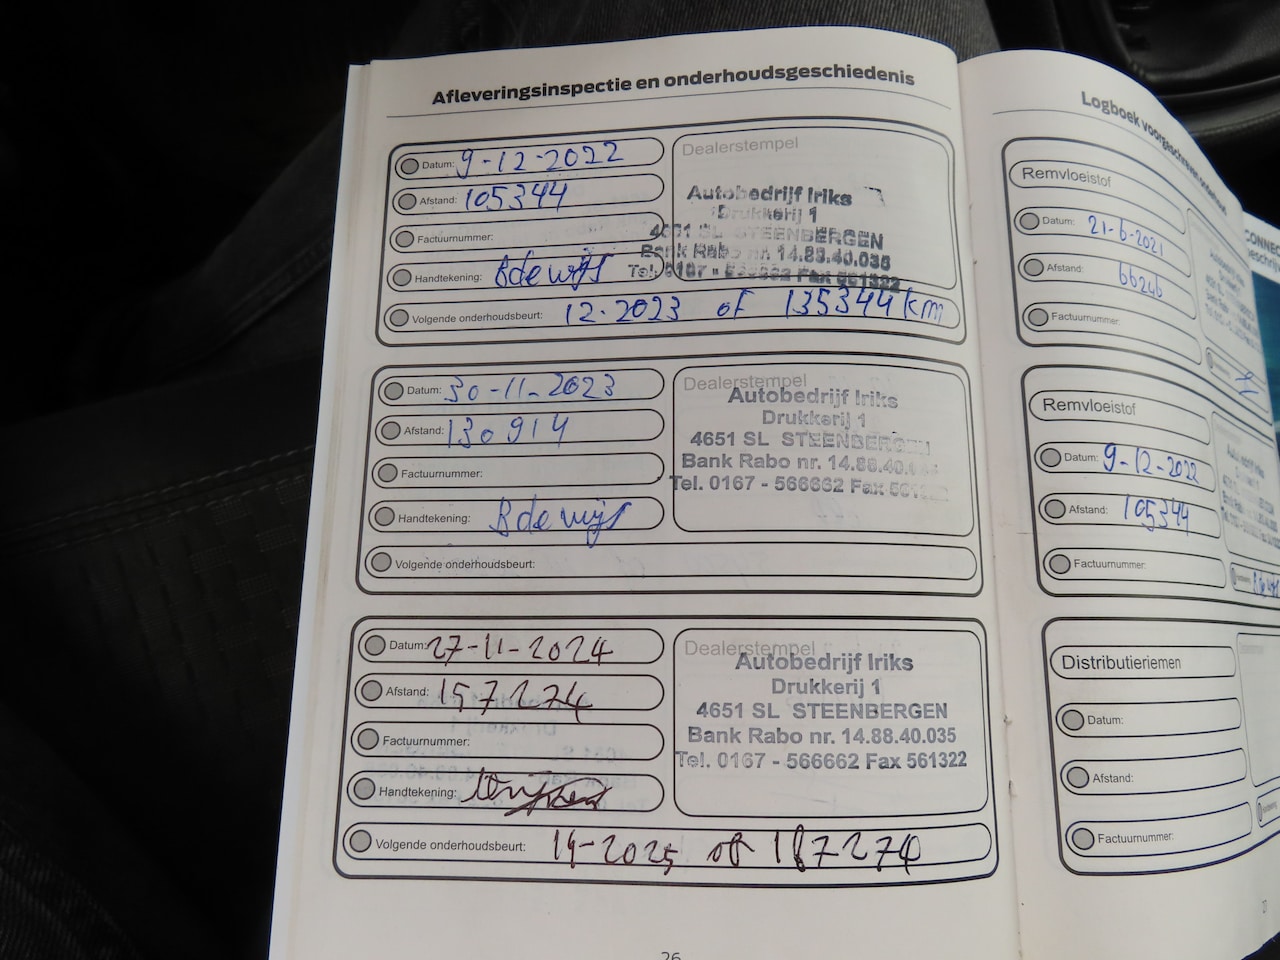 Afleveringsinspectie en onderhoudsgeschiedenis
Datum: 9-12-2022
Afstand: 105344
Factuurnummer:
Handtekening: Bdewijs
Volgende onderhoudsbeurt: 12-2023 of 135344 km
Dealerstempel
Autobedrijf Iriks
Drukkerij 1
STEENBERGEN
Bank Rabo nr. 14.88.40.035
Tel. 0167 - 566662 Fax 561322
Datum: 30-11-2023
Afstand: 130914
Factuurnummer:
Handtekening: Bdewijs
Volgende onderhoudsbeurt:
Dealerstempel
Autobedrijf Iriks
Drukkerij 1
4651 SL STEENBERGEN
Bank Rabo nr. 14.88.40.
Tel. 0167 - 566662 Fax
Datum: 27-11-2024
Afstand: 157274
Factuurnummer:
Handtekening:
Volgende onderhoudsbeurt: of 187274
Dealerstempel
Autobedrijf Iriks
Drukkerij 1
4651 SL STEENBERGEN
Bank Rabo nr. 14.88.40.035
Tel. 0167 - 566662 Fax 561322
26
Logboek voorgeschreven
Remvloeistof
Datum: 21-6-2021
Afstand: 66246
Factuurnummer:
Remvloeistof
Datum: 9-12-2022
Afstand: 105344
Factuurnummer:
Distributieriemen
Datum:
Afstand:
Factuurnummer: